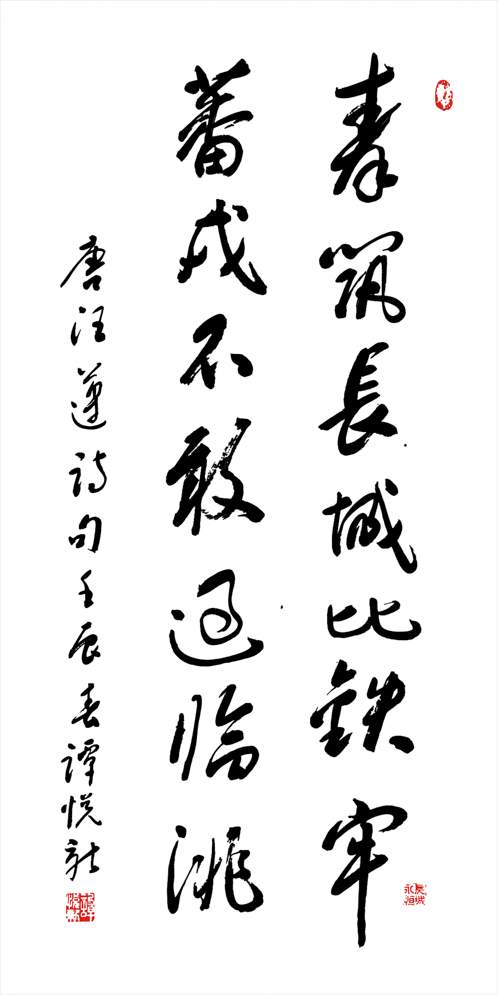 秦筑長城比鉄牢
蕃戎不敢過臨洮
唐汪遵詩句壬辰春譚悦新